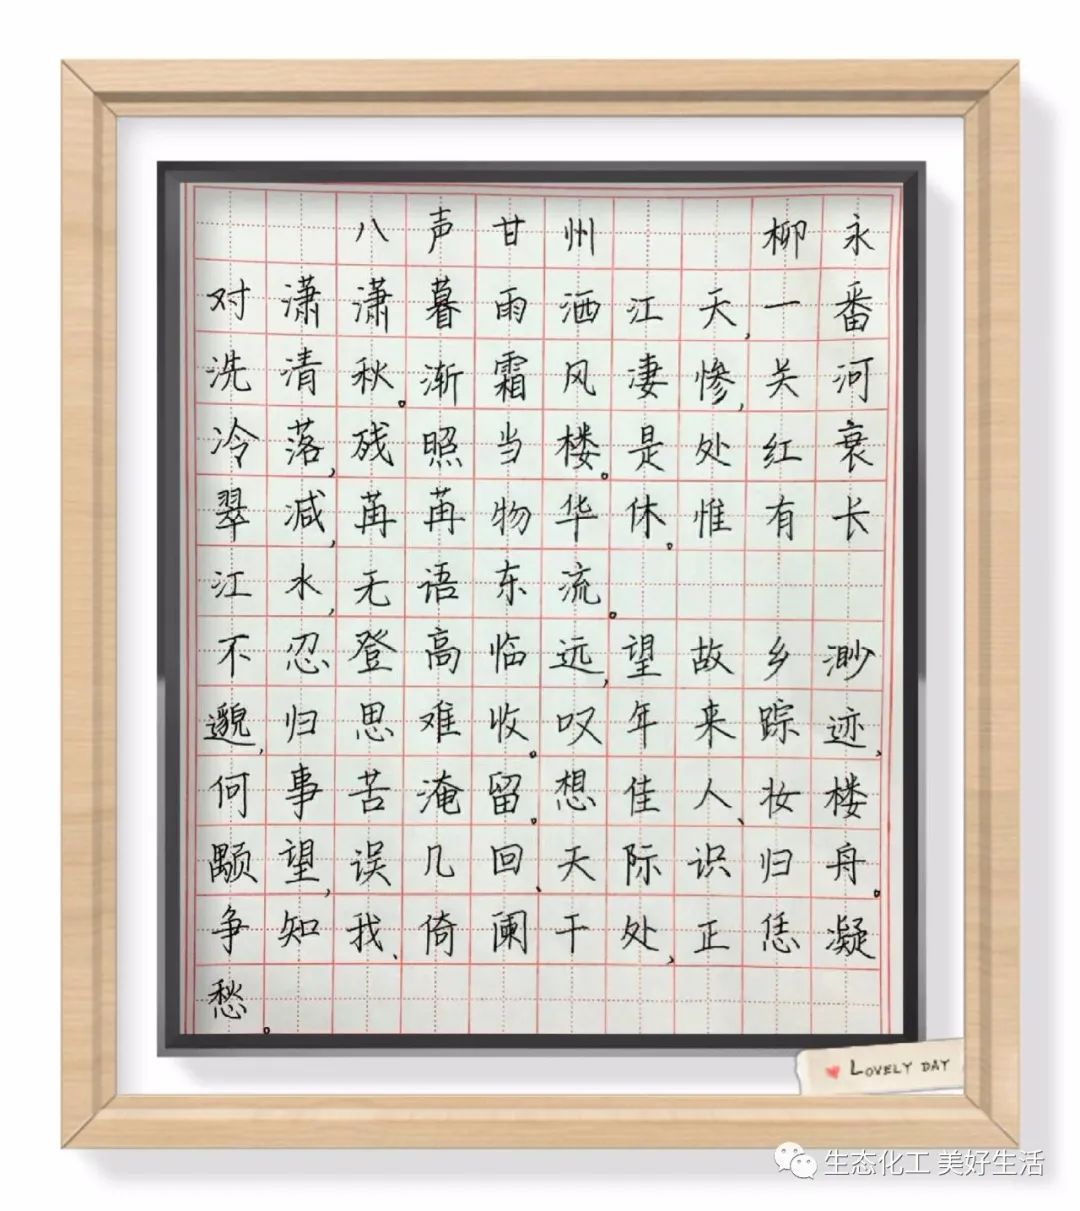 八声甘州 柳永
对潇潇暮雨洒江天,一番
洗清秋。渐霜风凄惨,关河
冷落,残照当楼。是处红衰
翠减,苒苒物华休。惟有长
江水,无语东流。
不忍登高临远,望故乡渺
邈,归思难收。叹年来踪迹,
何事苦淹留。想佳人、妆楼
颙望,误几回、天际识归舟。
争知我、倚阑干处,正恁凝
愁。
LOVELY DAY
生态化工 美好生活